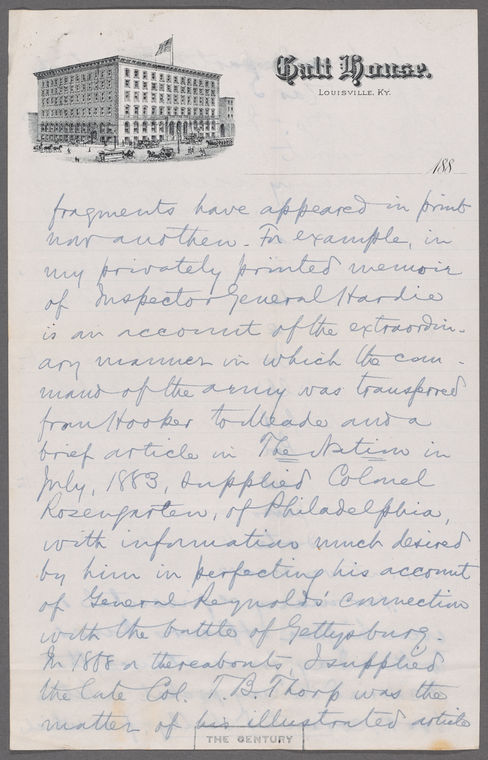 Galt House.
LOUISVILLE, KY.
188
fragments have appeared in print
now and then. For example, in
my privately printed memoir
of Inspector General Hardie
is an account of the extraordin-
ary manner in which the com-
mand of the army was transferred
from Hooker to Meade and a
brief article in The Nation in
July, 1883, supplied Colonel
Rosengarten, of Philadelphia,
with information much desired
by him in perfecting his account
of General Reynolds' connection
with the battle of Gettysburg.
In 1868 or thereabouts, I supplied
the late Col. T. B. Thorp was the
matter of his illustrated article
THE CENTURY